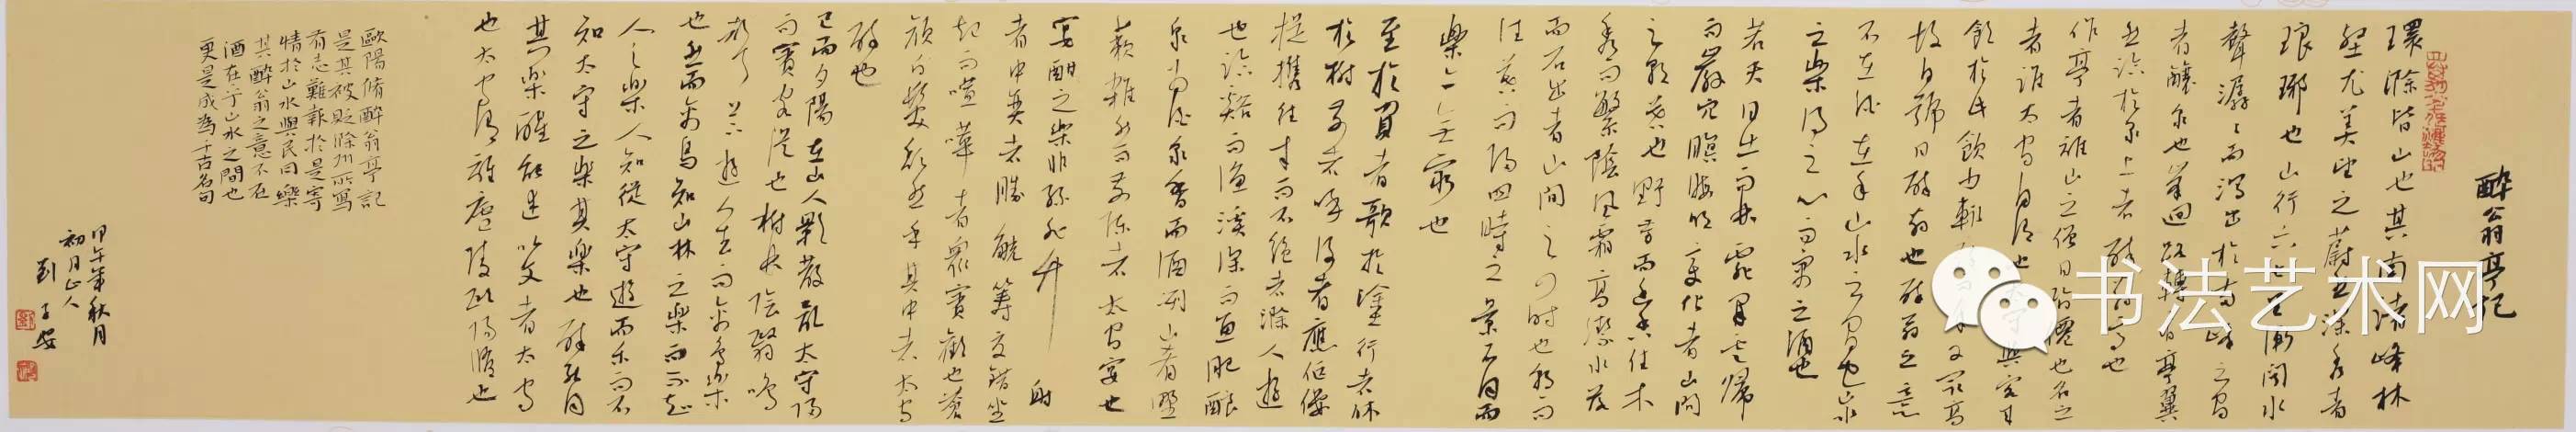 醉翁亭記
環滁皆山也其南諸峰林
壑尤美望之蔚然深秀者
琅琊也山行六七里漸聞水
聲潺〻而瀉出於兩峰之間
者釀泉也峯回路轉有亭翼
然臨於泉上者醉翁亭也
作亭者誰山之僧曰智僊也名之
者誰太守自謂也太守與客來
飲於此飲少輒醉而年又最高
故自號曰醉翁也醉翁之意
不在酒在乎山水之間也山水
之樂得之心而寓之酒也
若夫日出而林霏開雲歸
而巖穴暝晦明變化者山間
之朝暮也野芳而幽香佳木
秀而繁陰風霜高潔水落
而石出者山間之四時也朝而
往暮而歸四時之景不同而
樂亦無窮也
至於負者歌於塗行者休
於樹前者呼後者應傴僂
提攜往來而不絕者滁人遊
也臨谿而漁溪深而魚肥釀
泉為酒泉香而酒洌山肴野
蔌雜然而前陳者太守宴也
宴酣之樂非絲非竹 射
者中奕者勝觥籌交錯坐
起而喧嘩者衆賓歡也蒼
顏白髮頹然乎其中者太守
醉也
已而夕陽在山人影散亂太守歸
而賓客從也樹林陰翳鳴
聲上下遊人去而禽鳥樂
也然而禽鳥知山林之樂而不知
人之樂人知從太守遊而樂而不
知太守之樂其樂也醉能同
其樂醒能述以文者太守
也太守謂誰廬陵歐陽脩也
歐陽脩醉翁亭記
是其被貶滁州所寫
有志難報於是寄
情於山水與民同樂
其醉翁之意不在
酒在乎山水之間也
更是成為千古名句
甲午年秋月
初月山人
劉子安
书法艺术网